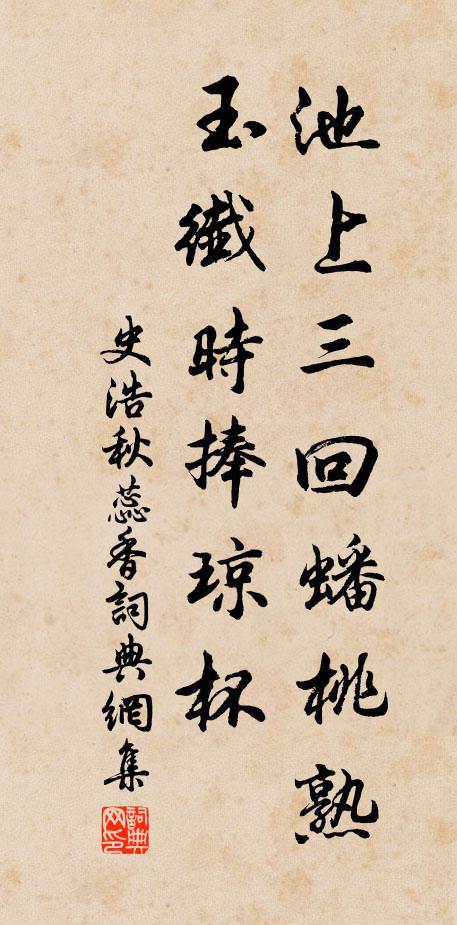 池上三回蟠桃熟
玉纖時捧琼杯
史浩秋蕊香詞典網集
詞典网印